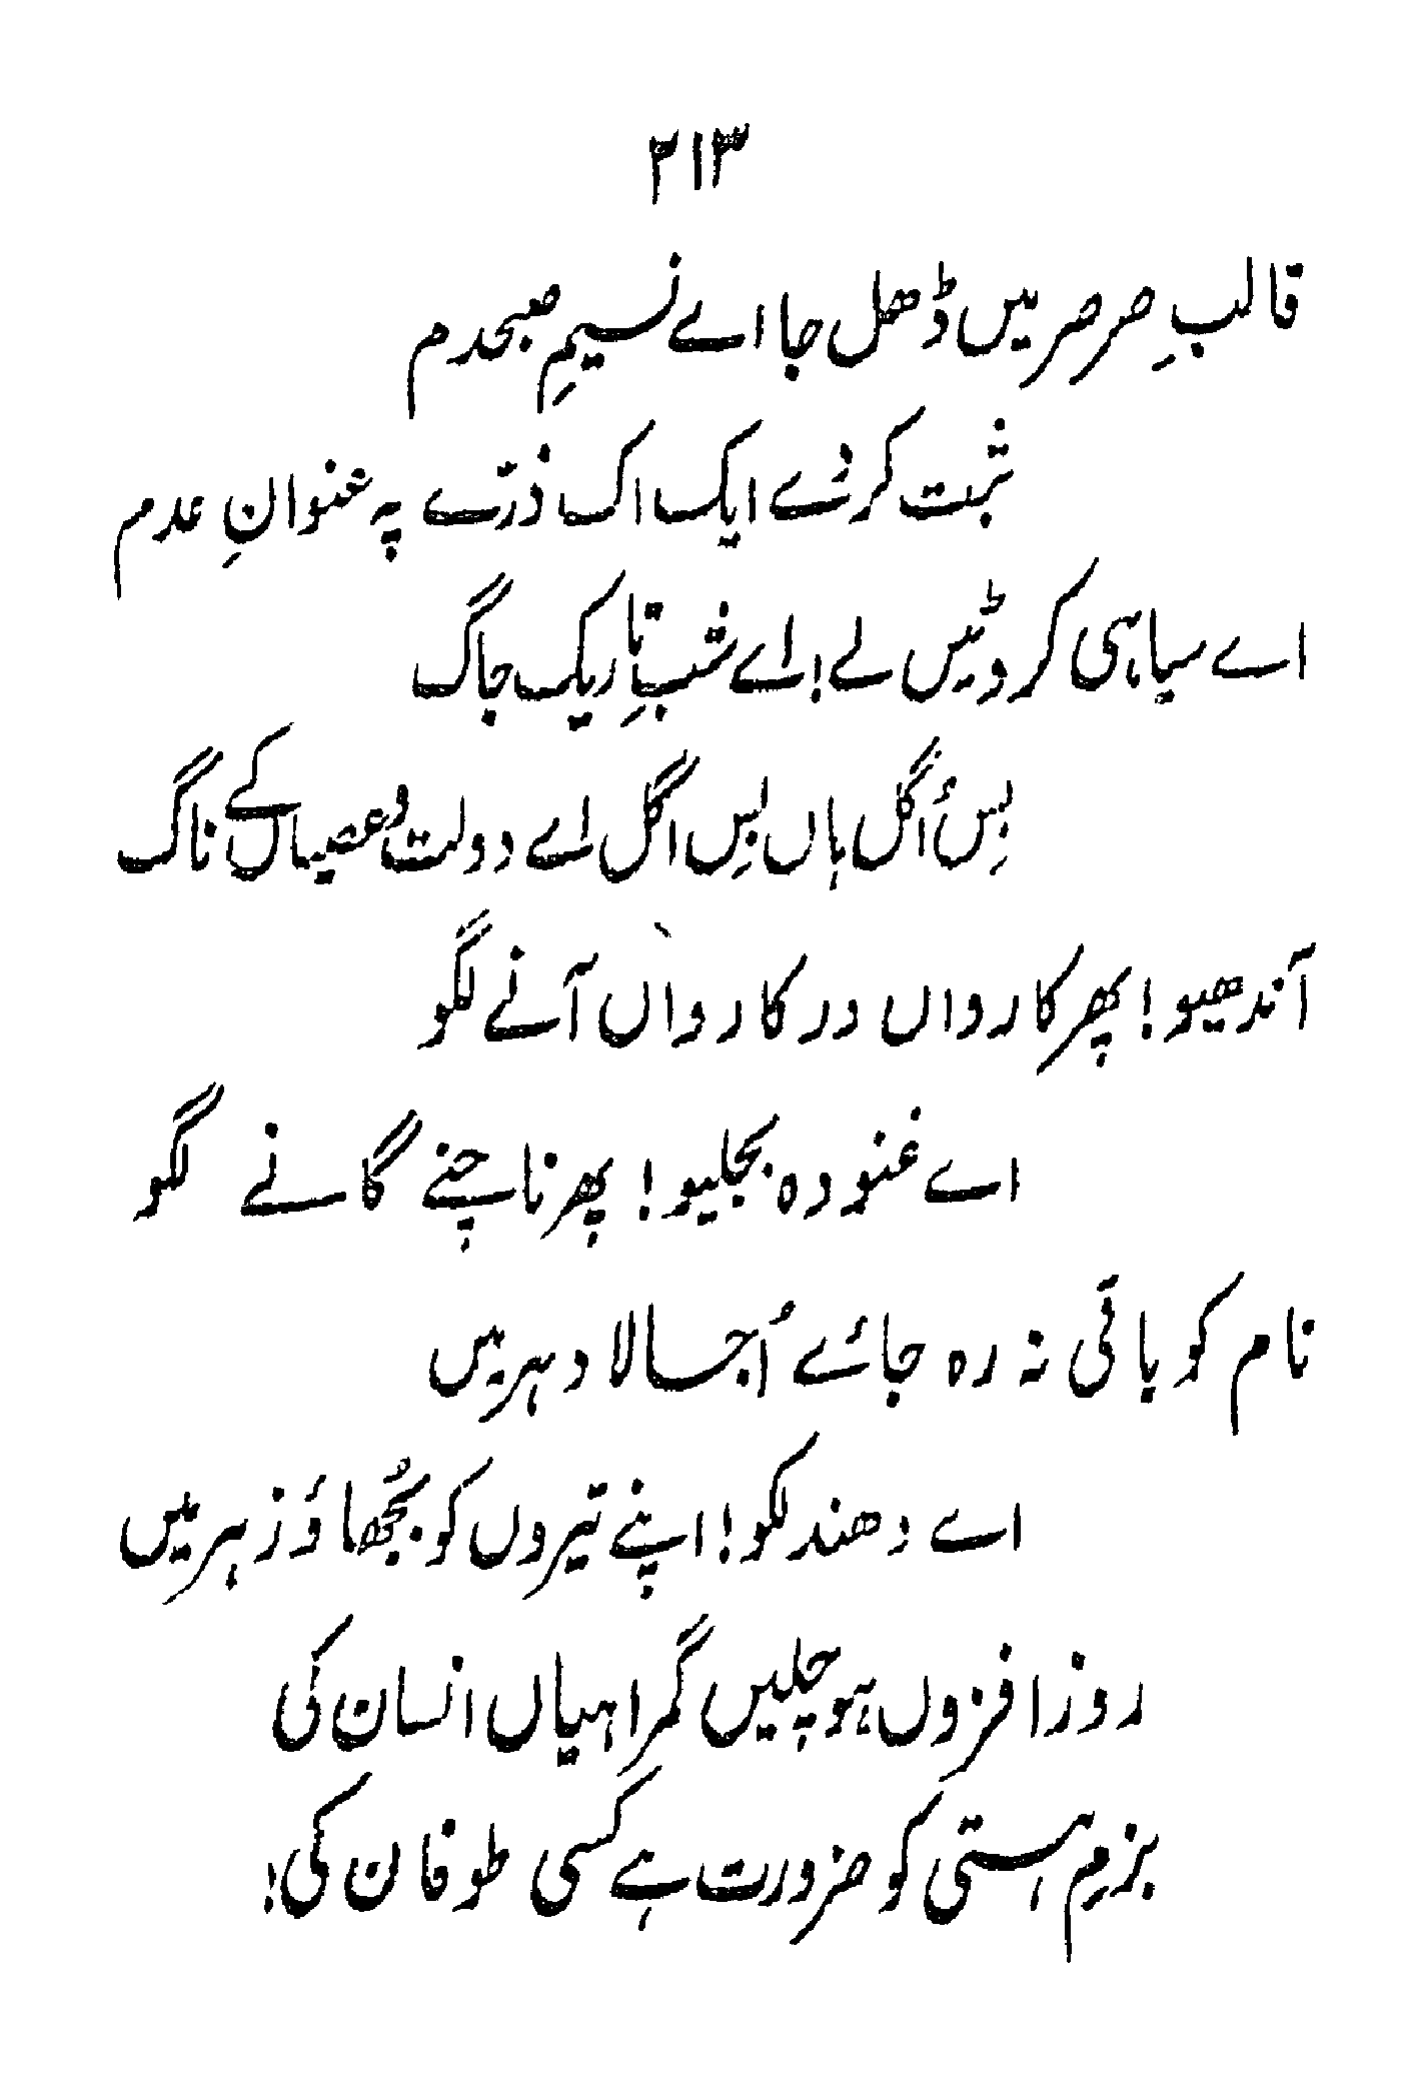 ۲۱۳
قالبِ صرصر میں ڈھل جا اے نسیمِ صبحدم
ثبت کر دے ایک اک ذرّے پہ عنوانِ عدم
اے سیاہی کروٹیں لے! اے شبِ تاریک جاگ
بِس اُگل ہاں بِس اگل اے دولت و عصیاں کے ناگ
آندھیو! پھر کارواں در کارواں آنے لگو
اے غنودہ بجلیو! پھر ناچنے گانے لگو
نام کو باقی نہ رہ جائے اُجالا دہر میں
اے دھندلکو! اپنے تیروں کو بُجھاؤ زہر میں
روز افزوں ہو چلیں گمراہیاں انسان کی
بزمِ ہستی کو ضرورت ہے کسی طوفان کی!